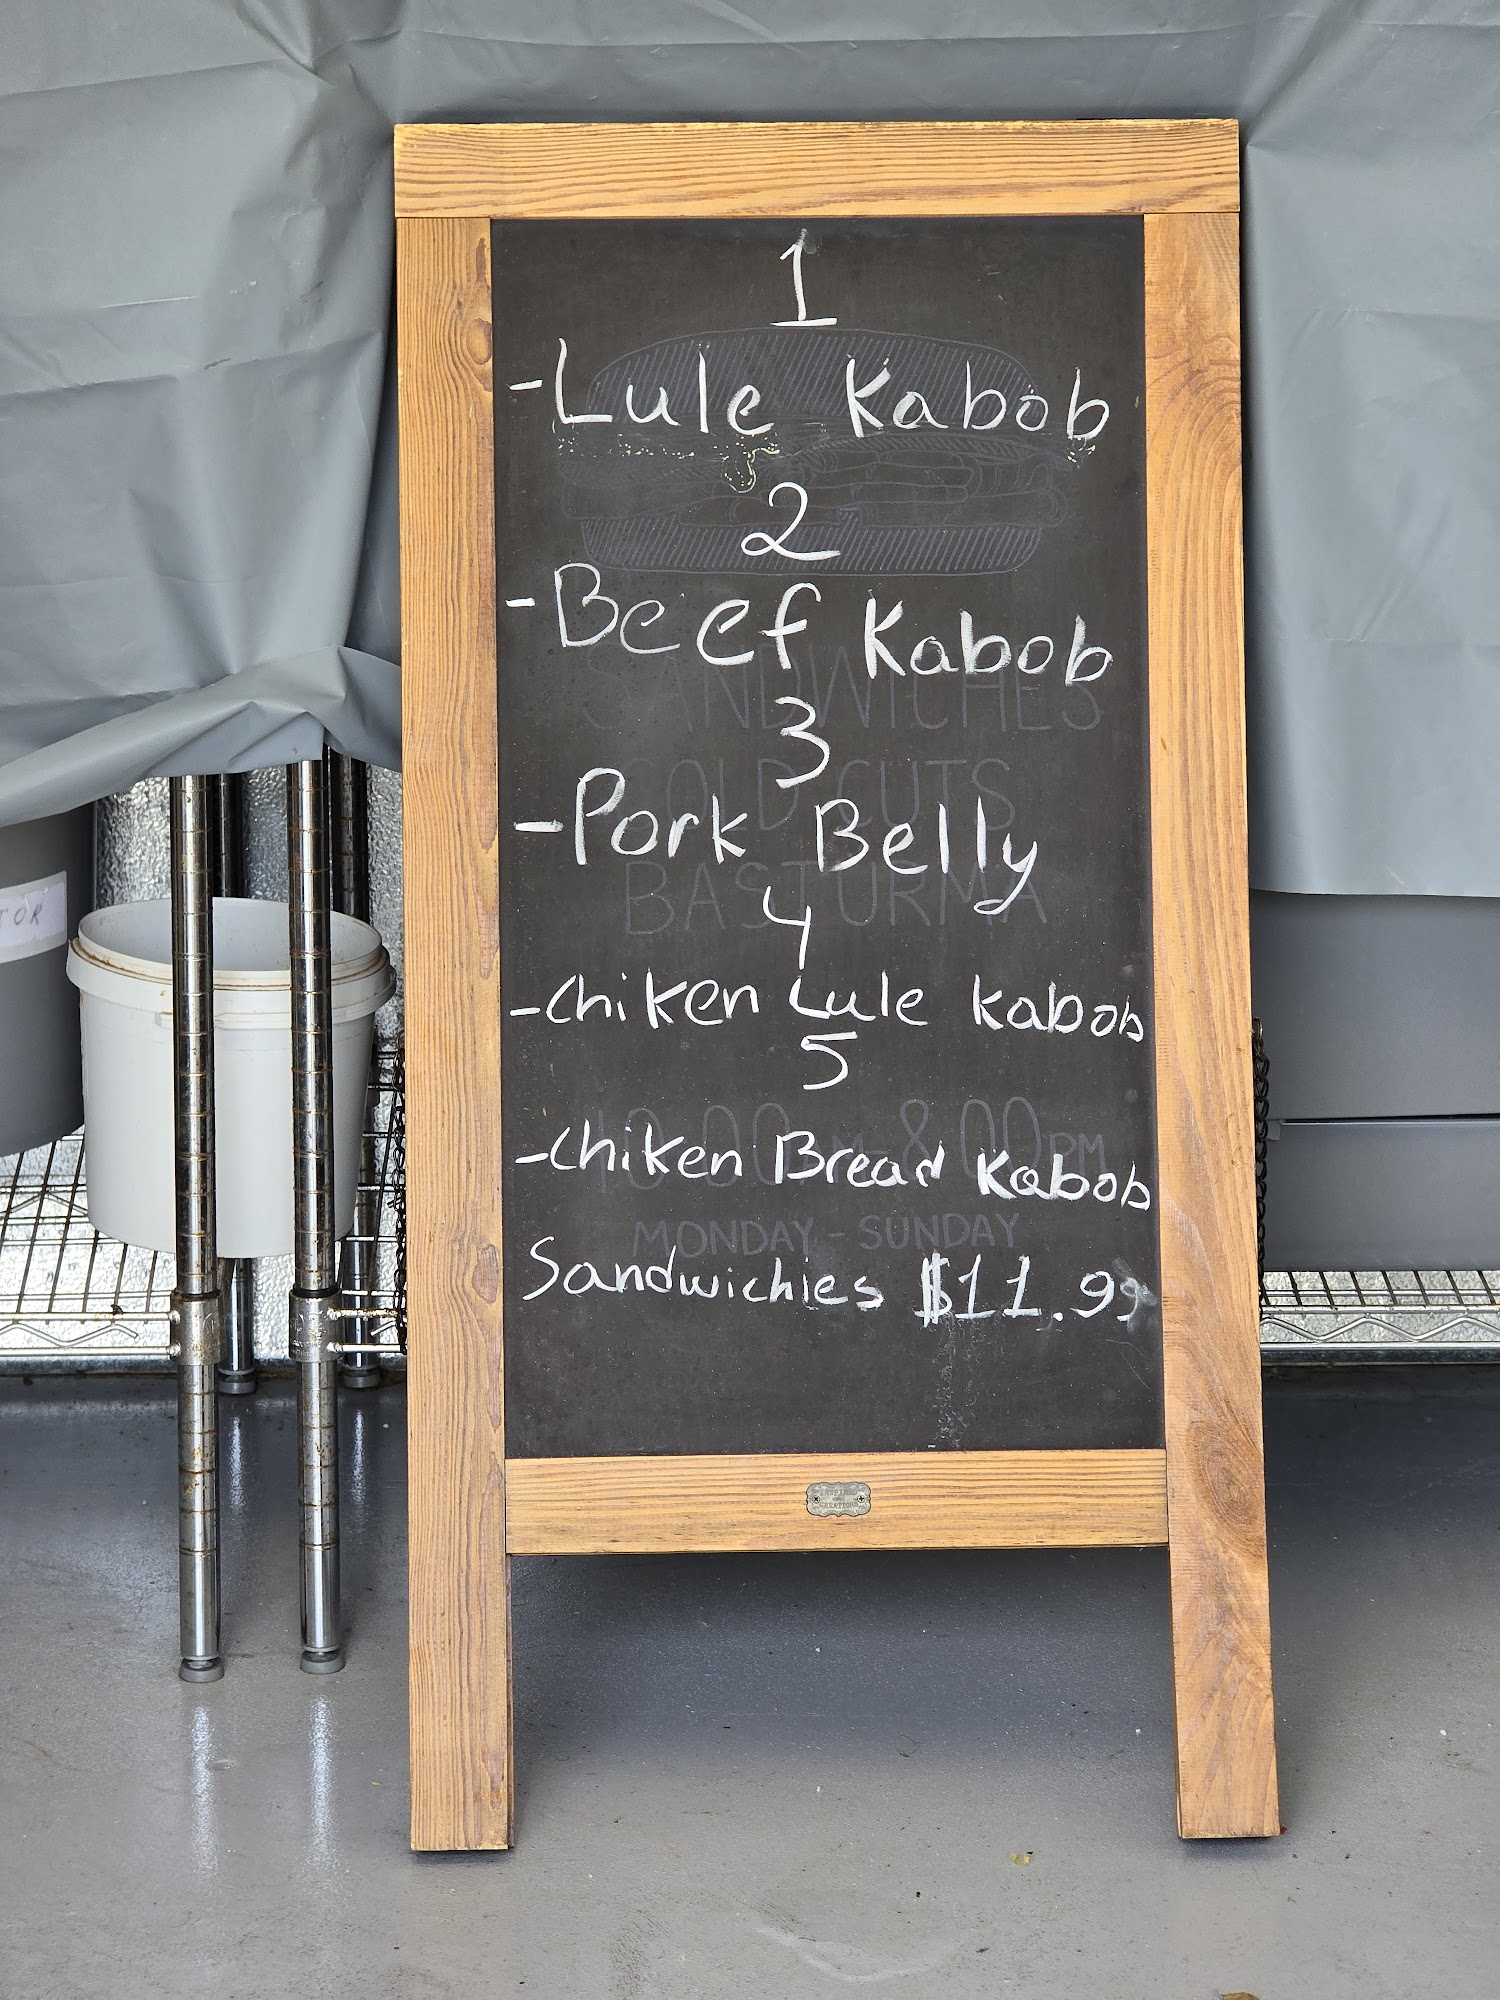 1
-Lule Kabob
2
-Beef Kabob
SANDWICHES
3
COLD CUTS
-Pork Belly
BASTURMA
4
-Chiken Lule Kabob
5
10:00AM-8:00PM
-Chiken Bread Kabob
MONDAY - SUNDAY
Sandwichies $11.99
TOR